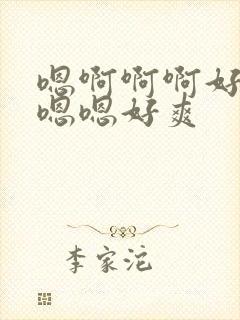 嗯啊啊啊好
嗯嗯好爽
李家沱